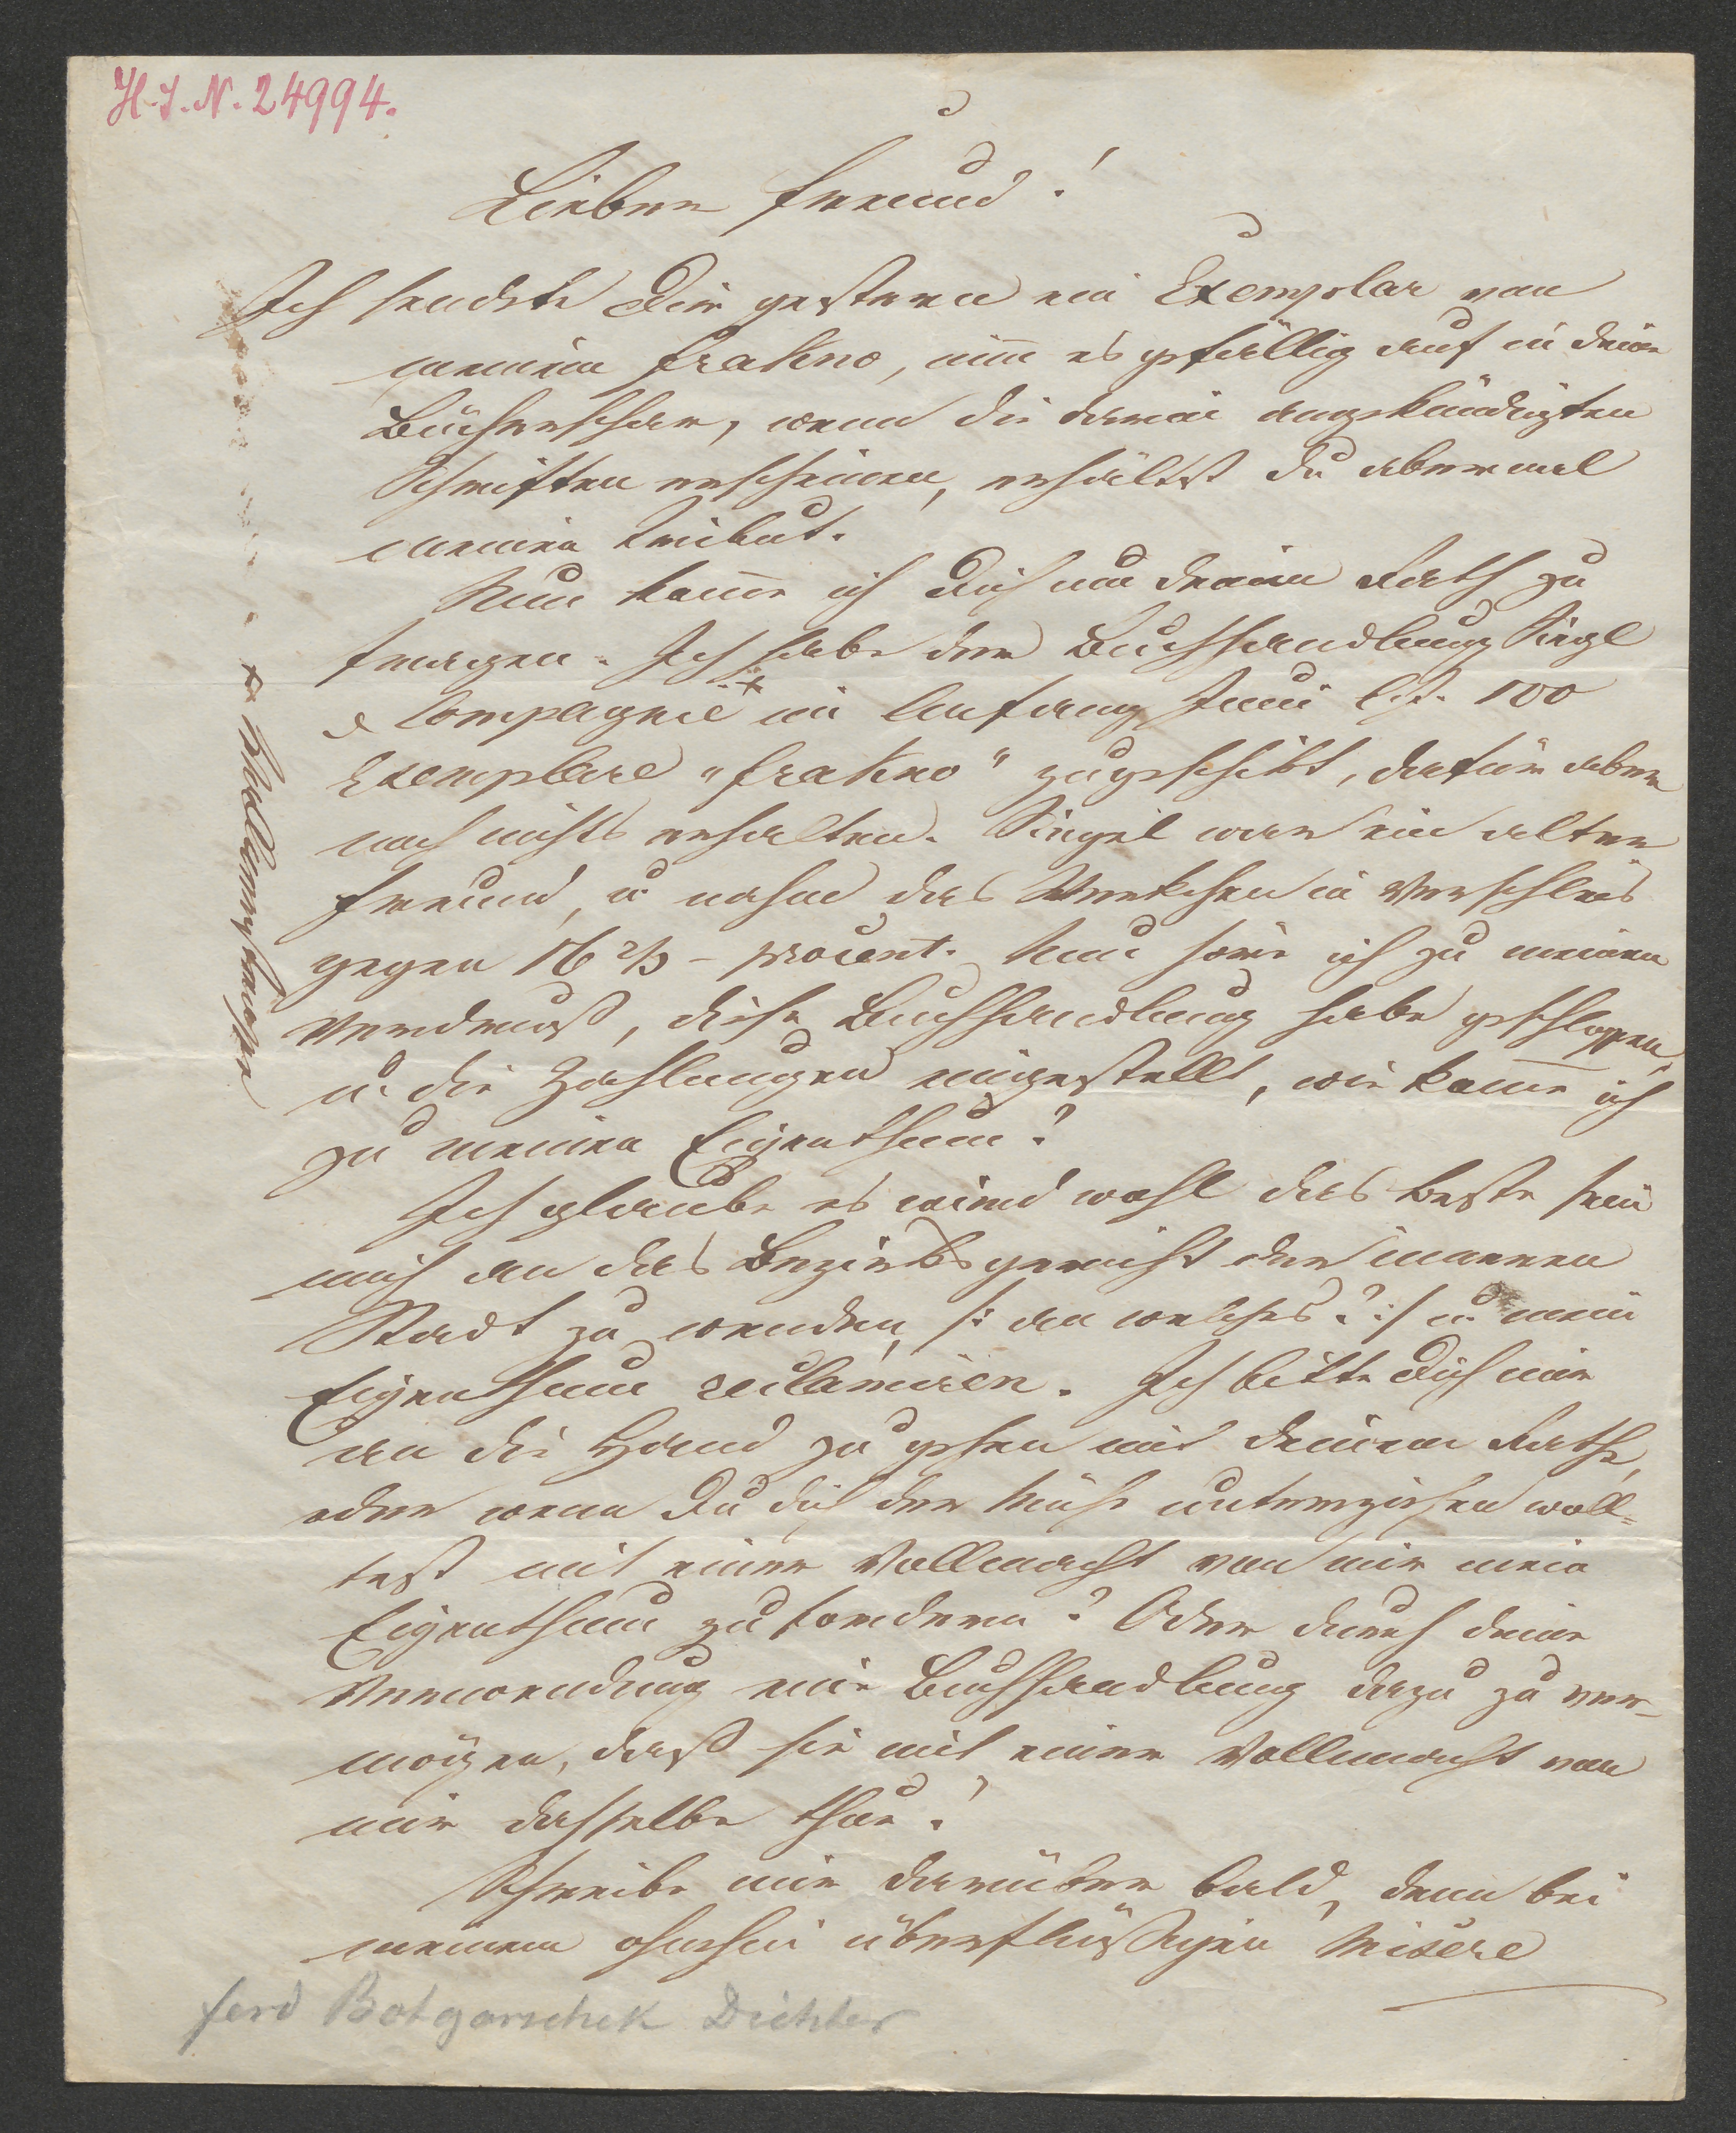 H. I. N. 24994.
Lieber Freund!
Ich sendete Dir gestern ein Exemplar von
meinem Frakno, nim̅ es gefällig auf in deine
Bücherschar, wenn die darin angekündigten
Schriften erscheinen, erhältst du abermal
meinen Tribut.
Nun kom̅e ich dich um deinen Rath zu
fragen. Ich habe der Buchhandlung Sigl
& Compagnie * im Anfang Juni l. J. 100
Exemplare "Frakno" zugeschikt, dafür aber
noch nichts erhalten. Singel war ein alter
Freund, u nahm das Werkchen in Verschleis
gegen 16 2/3 - procent. Nun höre ich zu meinem
Verdruß, diese Buchhandlung habe geschlossen
u. die Zahlungen eingestellt, wie kom̅e ich
zu meinem Eigenthum?
Ich glaube es wird wohl das beste sein
mich an das Bezirksgericht der inneren
Stadt zu wenden, /: an welches? :/ u. mein
Eigenthum reclamiren. Ich bitte dich mir
an die Hand zu gehen mit deinem Rathe,
oder wenn Du dich der Mühe unterziehen woll=
test mit einer Vollmacht von mir mein
Eigenthum zu fordern? Oder durch deine
Verwendung eine Buchhandlung dazu zu ver-
mögen, daß sie mit einer Vollmacht von
mir dasselbe thue?
Schreibe mir darüber bald, denn bei
meinem ohnehin überflüßigen Misere
ferd Botgorschek Dichter